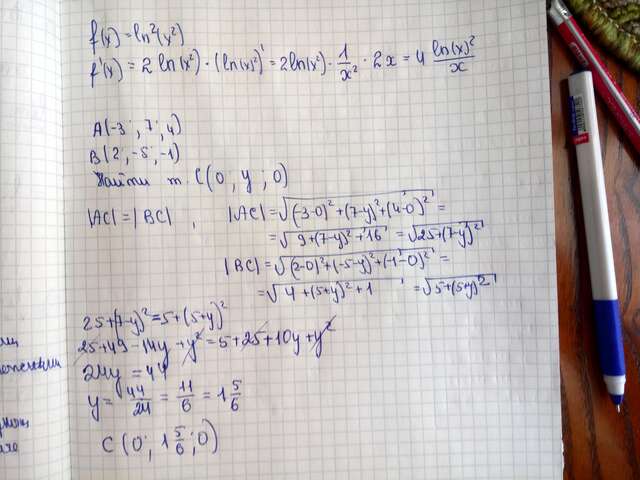 f(x) = ln²(x²)
f'(x) = 2 ln(x²) · (ln(x)²)' = 2ln(x²) · 1/x² · 2x = 4 ln(x)²/x
A(-3 ; 7 ; 4)
B(2 ; -5 ; -1)
Найти т. C(0 ; y ; 0)
|AC| = |BC| , |AC| = √((-3-0)² + (7-y)² + (4-0)²) =
= √(9 + (7-y)² + 16) = √(25 + (7-y)²)
|BC| = √((2-0)² + (-5-y)² + (-1-0)²) =
= √(4 + (5+y)² + 1) = √(5 + (5+y)²)
25 + (7-y)² = 5 + (5+y)²
25 + 49 - 14y + y² = 5 + 25 + 10y + y²
24y = 44
y = 44/24 = 11/6 = 1 5/6
C(0 ; 1 5/6 ; 0)